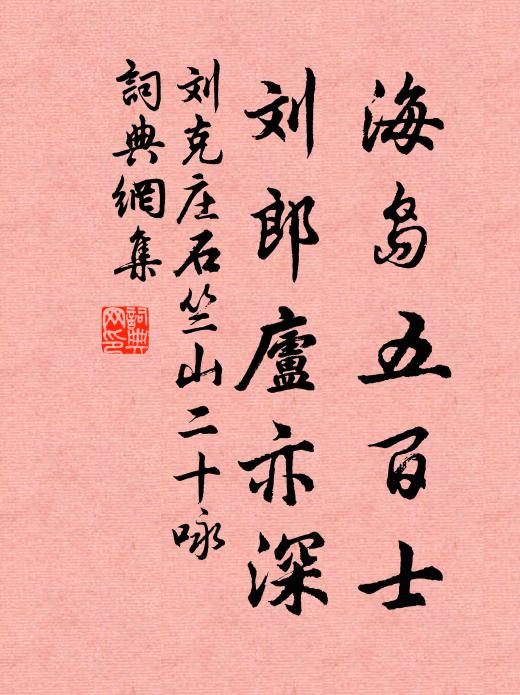 海島五百士
刘郎廬亦深
刘克庄石竺山二十咏
詞典網集
詞典網印